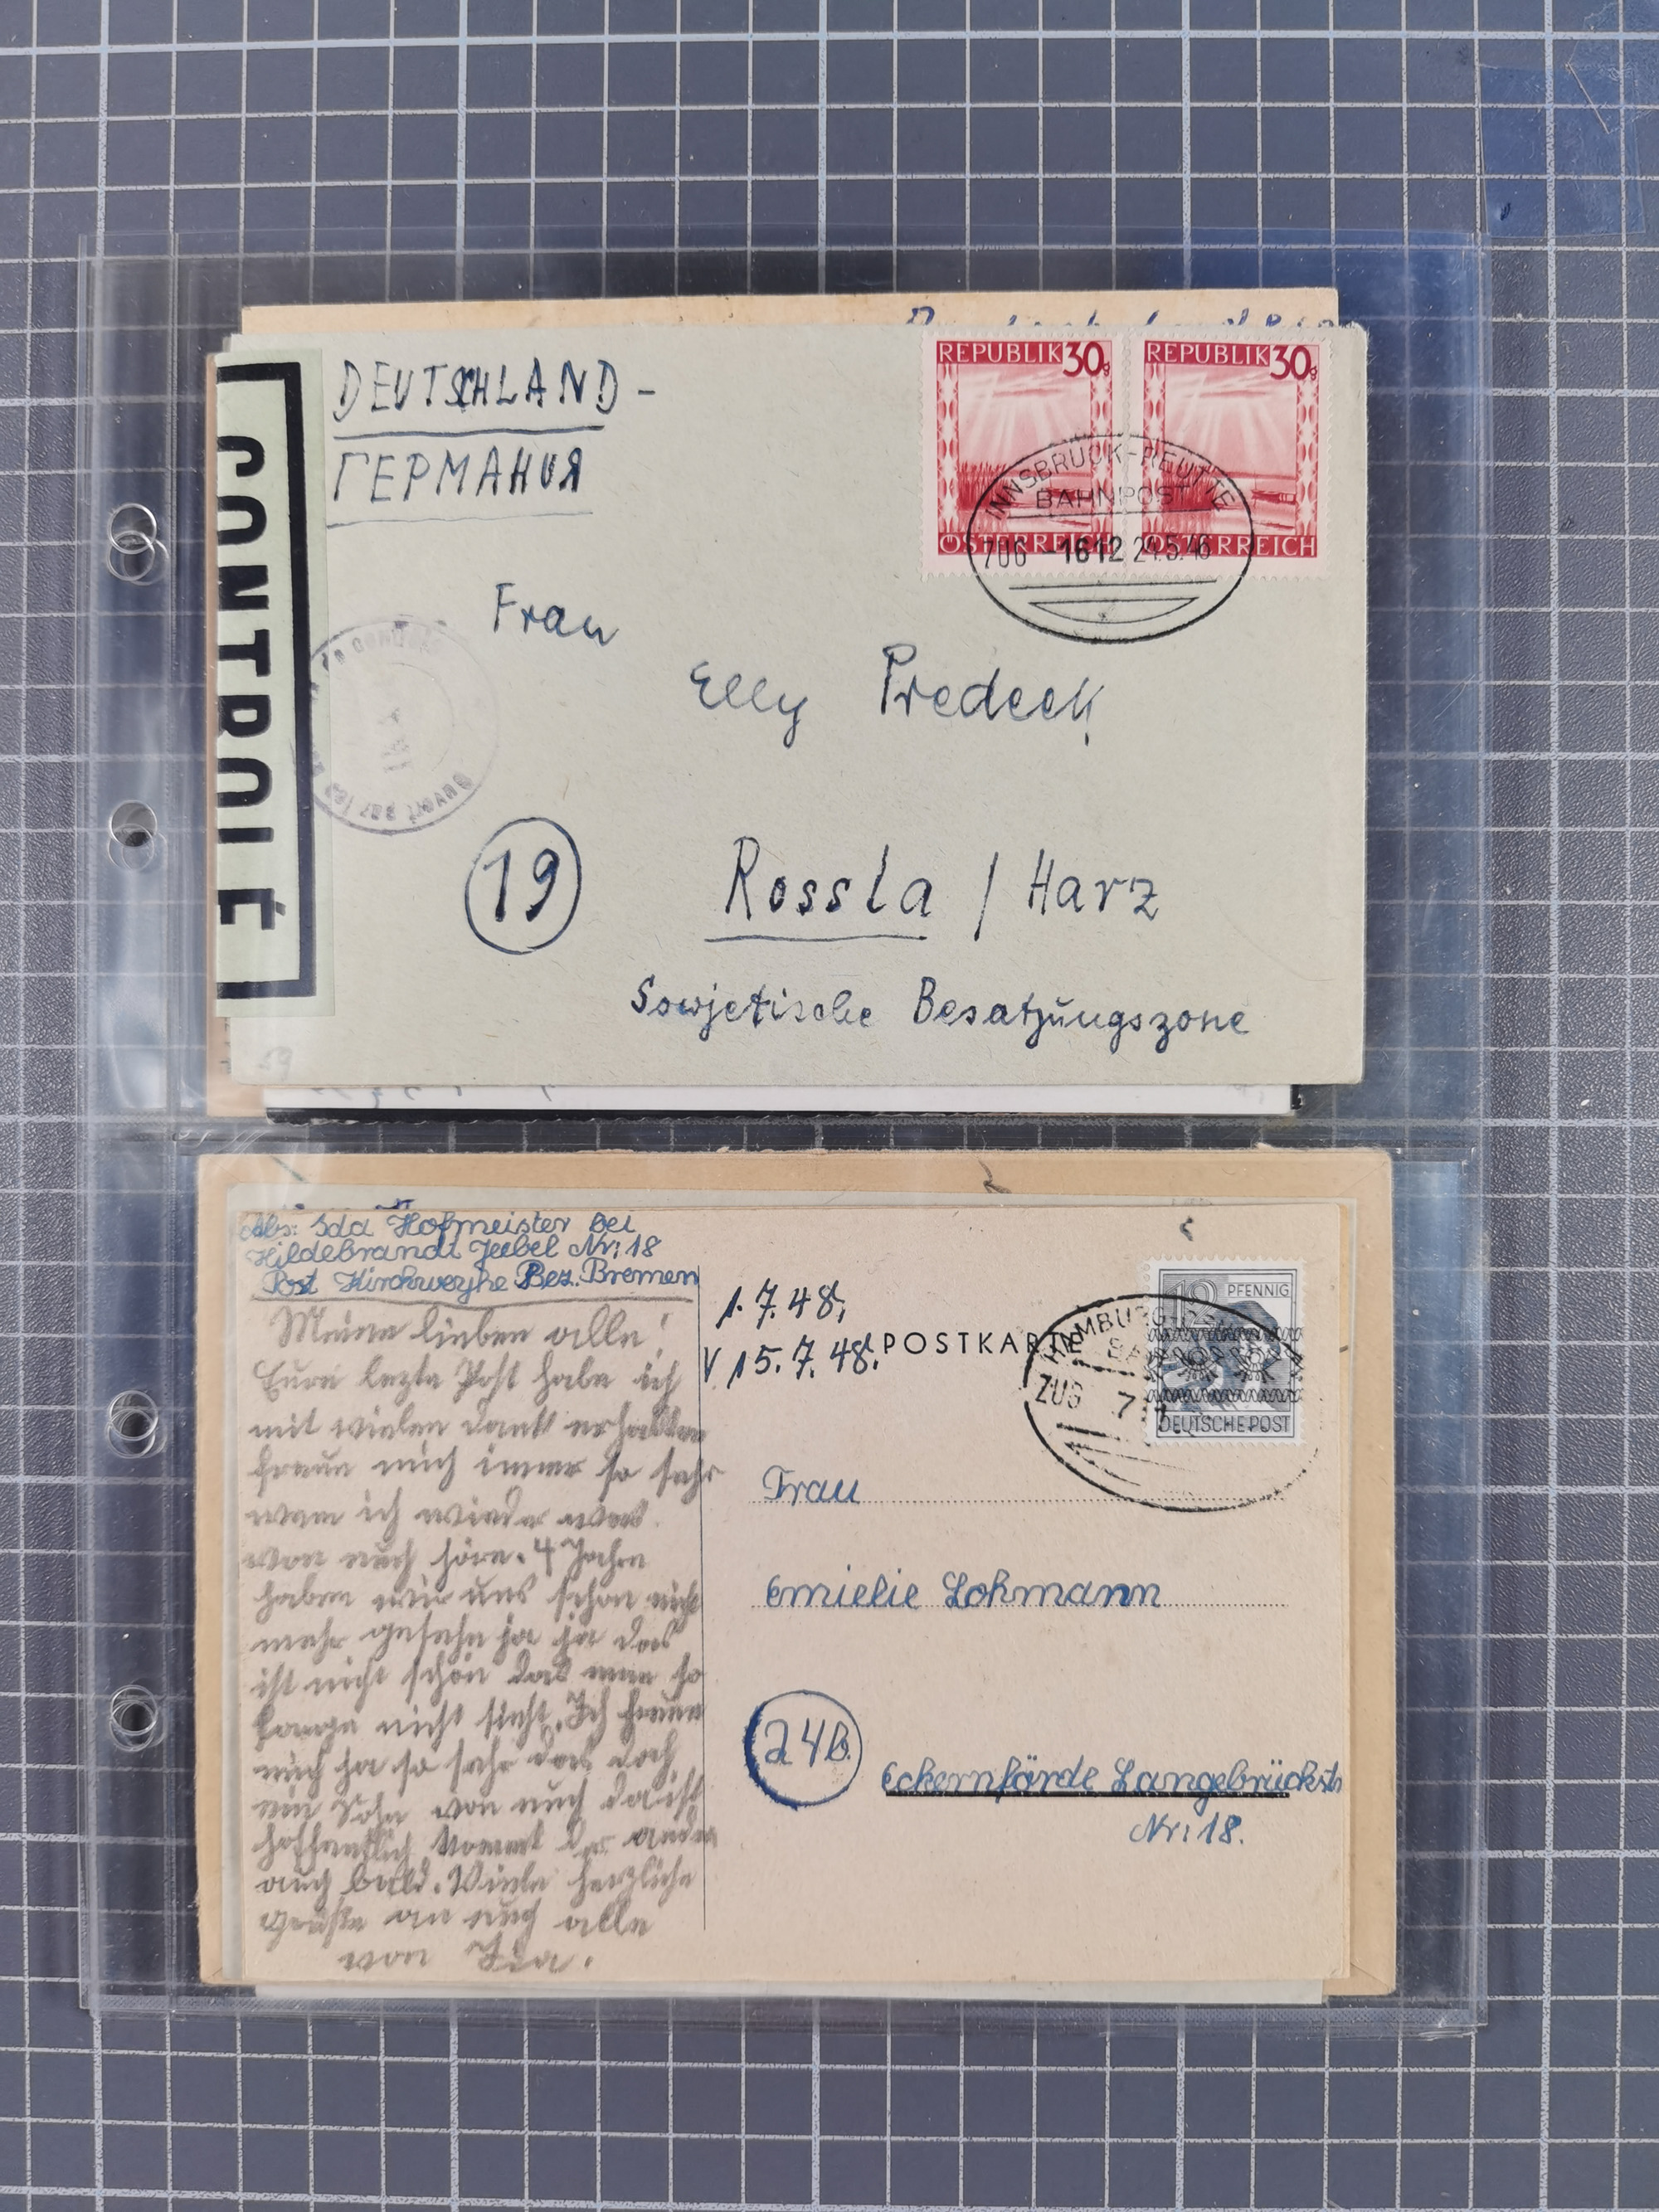 DEUTSCHLAND -
ГЕРМАНИЯ
CONTROLÉ
REPUBLIK 30g
ÖSTERREICH
REPUBLIK 30g
ÖSTERREICH
INNSBRUCK-REUTTE
BAHNPOST
706 -1612 24.5.46
Ouvert par les
Frau
Elly Predeek
19
Rossla / Harz
Sowjetische Besatzungszone
Abs: Ida Hofmeister bei
Hildebrandt Jeebel Nr: 18
Post Kirchweyhe Bez. Bremen
Meine lieben alle!
Eure lezte Post habe ich
mit vielen dank erhalten
freue mich immer so sehr
wen ich wieder was
von euch höre. 4 Jahre
haben wir uns schon nicht
mehr gesehn ja ja das
ist nicht schön das man so
lange nicht sieht. Ich freue
mich ja so sehr das doch
ein Sohn von euch da ist
hoffentlich kommt der andre
auch bald. Viele herzliche
Grüße an euch alle
von Ida.
1.7.48.
V 15.7.48.
POSTKARTE
12 PFENNIG
DEUTSCHE POST
HAMBURG
ZUG 7
Frau
Emielie Lohmann
24b.
Eckernförde Langebrückstr
Nr: 18.